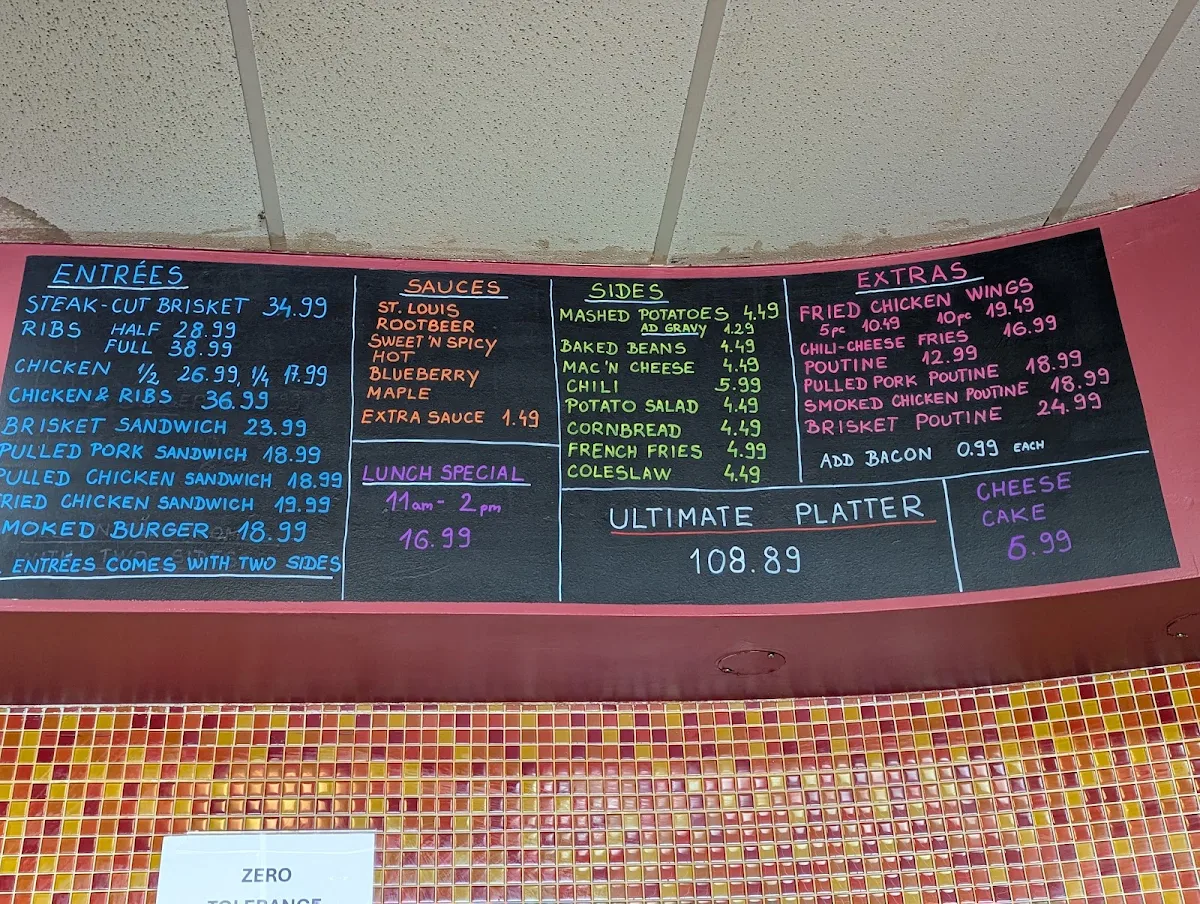 ENTRÉES
STEAK-CUT BRISKET 34.99
RIBS HALF 28.99
FULL 38.99
CHICKEN 1/2 26.99, 1/4 17.99
CHICKEN & RIBS 36.99
BRISKET SANDWICH 23.99
PULLED PORK SANDWICH 18.99
PULLED CHICKEN SANDWICH 18.99
RIED CHICKEN SANDWICH 19.99
MOKED BURGER 18.99
ENTRÉES COMES WITH TWO SIDES
SAUCES
ST. LOUIS
ROOTBEER
SWEET 'N SPICY
HOT
BLUEBERRY
MAPLE
EXTRA SAUCE 1.49
LUNCH SPECIAL
11am - 2pm
16.99
SIDES
MASHED POTATOES 4.49
AD GRAVY 1.29
BAKED BEANS 4.49
MAC 'N CHEESE 4.49
CHILI 5.99
POTATO SALAD 4.49
CORNBREAD 4.49
FRENCH FRIES 4.99
COLESLAW 4.49
EXTRAS
FRIED CHICKEN WINGS
5pc 10.49 10pc 19.49
CHILI-CHEESE FRIES 16.99
POUTINE 12.99
PULLED PORK POUTINE 18.99
SMOKED CHICKEN POUTINE 18.99
BRISKET POUTINE 24.99
ADD BACON 0.99 EACH
ULTIMATE PLATTER
108.89
CHEESE
CAKE
6.99
ZERO
TOLERANCE